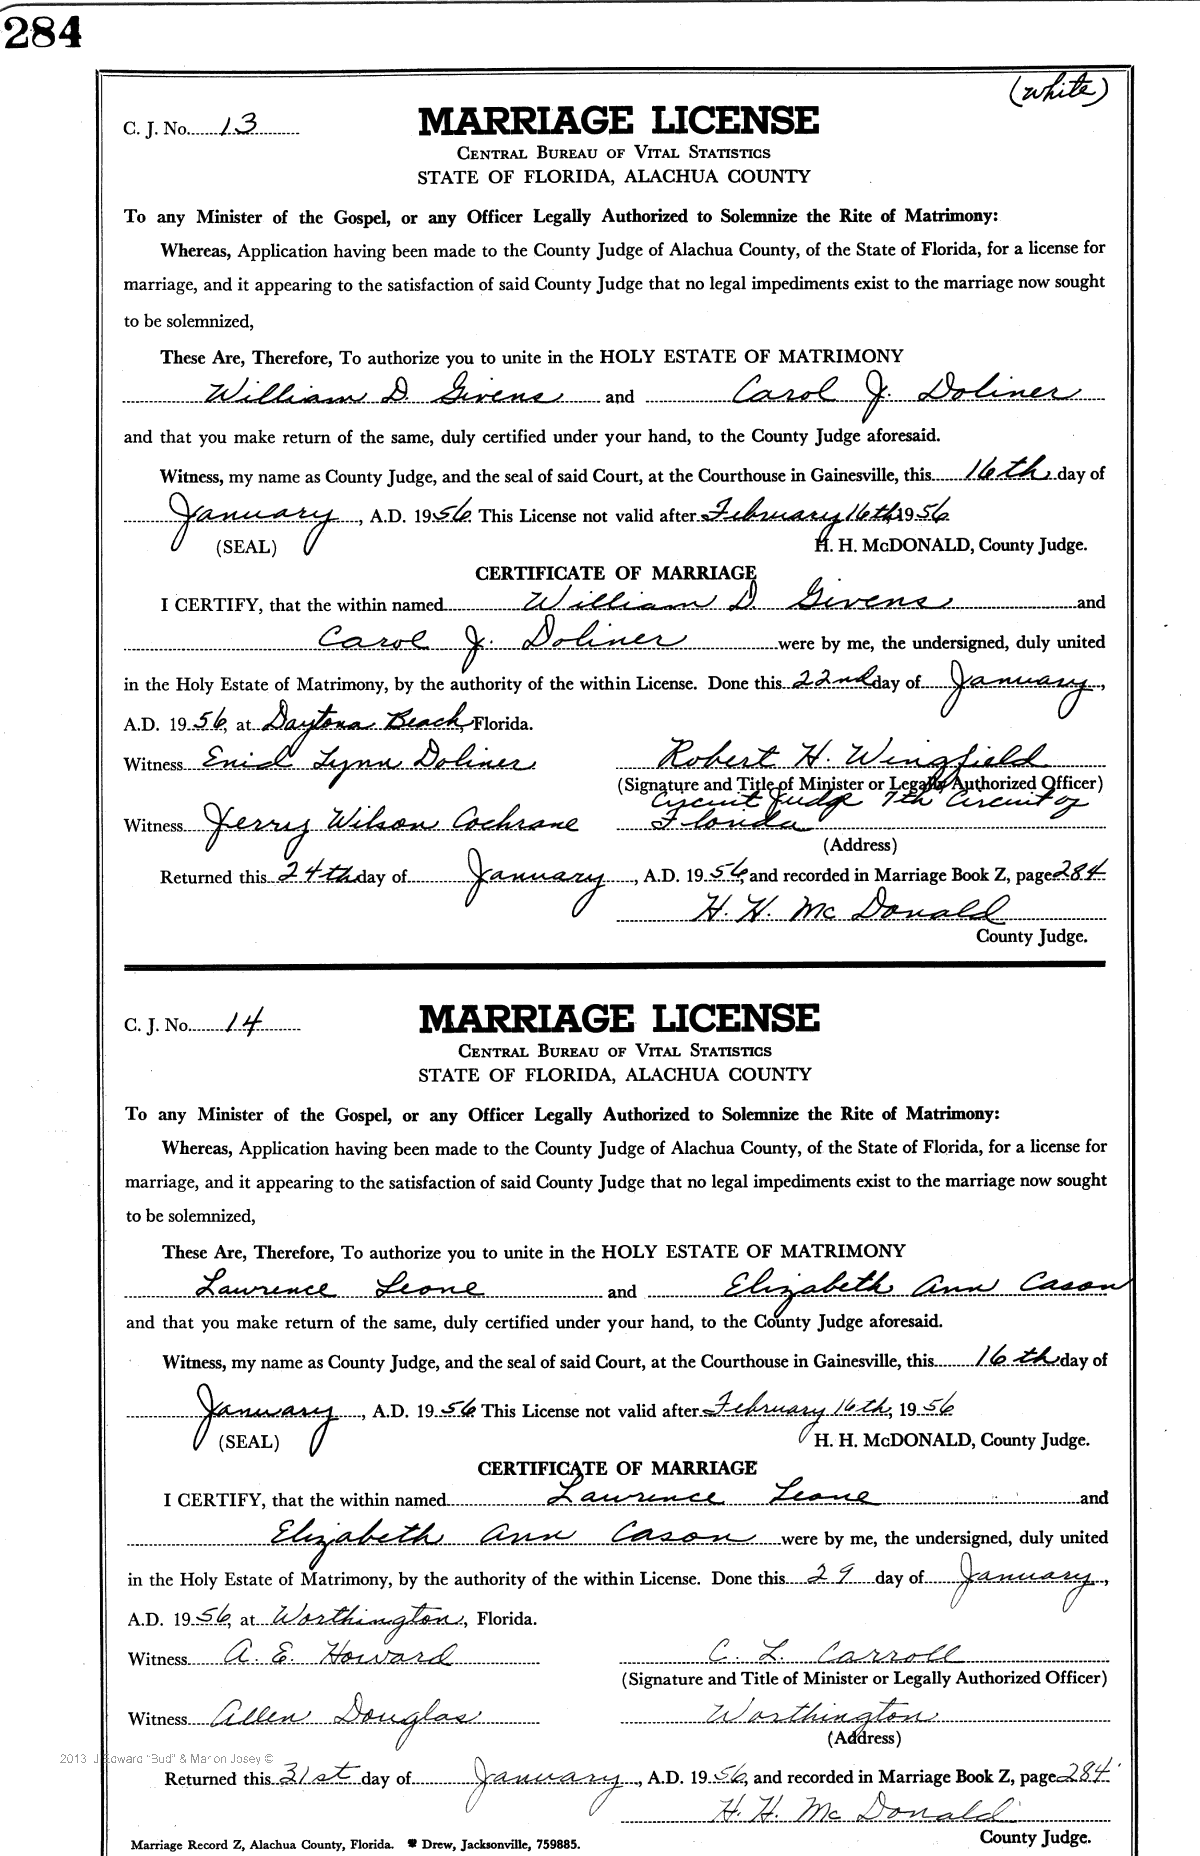 284
(white)
C. J. No. 13
MARRIAGE LICENSE
CENTRAL BUREAU OF VITAL STATISTICS
STATE OF FLORIDA, ALACHUA COUNTY
To any Minister of the Gospel, or any Officer Legally Authorized to Solemnize the Rite of Matrimony:
Whereas, Application having been made to the County Judge of Alachua County, of the State of Florida, for a license for
marriage, and it appearing to the satisfaction of said County Judge that no legal impediments exist to the marriage now sought
to be solemnized,
These Are, Therefore, To authorize you to unite in the HOLY ESTATE OF MATRIMONY
William D. Givens and Carol J. Doliner
and that you make return of the same, duly certified under your hand, to the County Judge aforesaid.
Witness, my name as County Judge, and the seal of said Court, at the Courthouse in Gainesville, this 16th day of
January, A.D. 1956. This License not valid after February 16th, 1956
(SEAL) H. H. McDONALD, County Judge.
CERTIFICATE OF MARRIAGE
I CERTIFY, that the within named William D. Givens and
Carol J. Doliner were by me, the undersigned, duly united
in the Holy Estate of Matrimony, by the authority of the within License. Done this 22nd day of January,
A.D. 1956, at Daytona Beach, Florida.
Witness Enid Lynn Doliner Robert H. Wingfield
(Signature and Title of Minister or Legally Authorized Officer)
Circuit Judge 7th Circuit of
Witness Jerry Wilson Cochrane Florida
(Address)
Returned this 24th day of January, A.D. 1956, and recorded in Marriage Book Z, page 284
H. H. McDonald
County Judge.
C. J. No. 14
MARRIAGE LICENSE
CENTRAL BUREAU OF VITAL STATISTICS
STATE OF FLORIDA, ALACHUA COUNTY
To any Minister of the Gospel, or any Officer Legally Authorized to Solemnize the Rite of Matrimony:
Whereas, Application having been made to the County Judge of Alachua County, of the State of Florida, for a license for
marriage, and it appearing to the satisfaction of said County Judge that no legal impediments exist to the marriage now sought
to be solemnized,
These Are, Therefore, To authorize you to unite in the HOLY ESTATE OF MATRIMONY
Lawrence Leone and Elizabeth Ann Cason
and that you make return of the same, duly certified under your hand, to the County Judge aforesaid.
Witness, my name as County Judge, and the seal of said Court, at the Courthouse in Gainesville, this 16th day of
January, A.D. 1956. This License not valid after February 16th, 1956
(SEAL) H. H. McDONALD, County Judge.
CERTIFICATE OF MARRIAGE
I CERTIFY, that the within named Lawrence Leone and
Elizabeth Ann Cason were by me, the undersigned, duly united
in the Holy Estate of Matrimony, by the authority of the within License. Done this 29 day of January,
A.D. 1956, at Worthington, Florida.
Witness A. E. Howard C. L. Carroll
(Signature and Title of Minister or Legally Authorized Officer)
Witness Allen Douglas Worthington
(Address)
2013 J Edward "Bud" & Marion Josey ©
Returned this 31st day of January, A.D. 1956, and recorded in Marriage Book Z, page 284
H. H. McDonald
County Judge.
Marriage Record Z, Alachua County, Florida. Drew, Jacksonville, 759885.